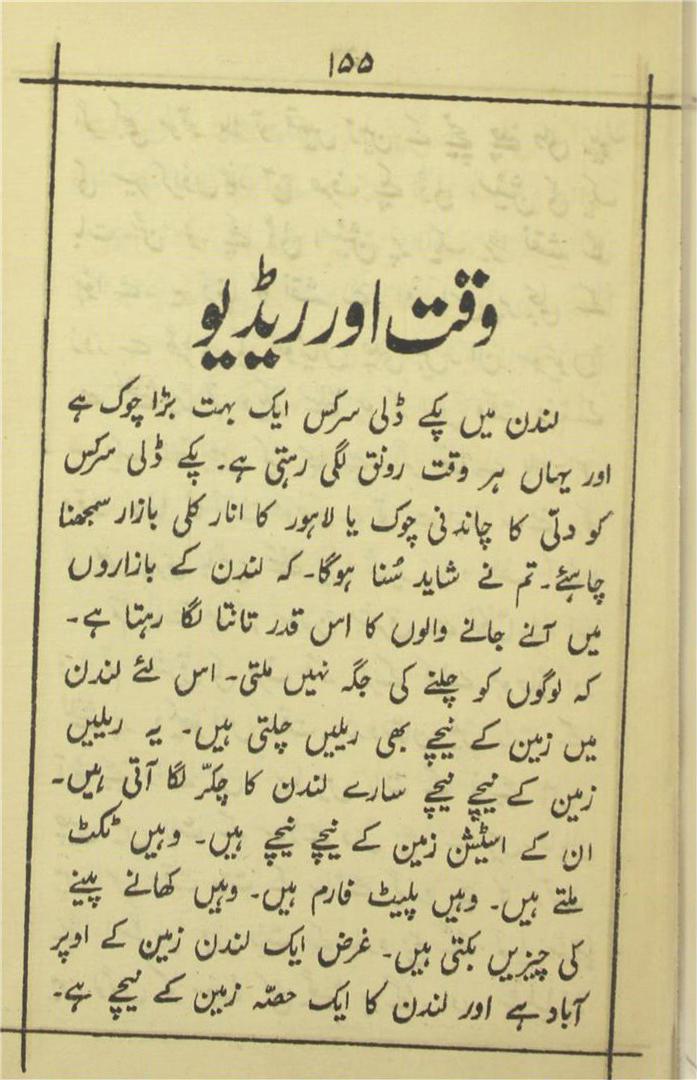 ۱۵۵
وقت اور ریڈیو
لندن میں پکے ڈلی سرکس ایک بہت بڑا چوک ہے
اور یہاں ہر وقت رونق لگی رہتی ہے۔ پکے ڈلی سرکس
کو دلّی کا چاندنی چوک یا لاہور کا انار کلی بازار سمجھنا
چاہئے۔ تم نے شاید سُنا ہوگا۔ کہ لندن کے بازاروں
میں آنے جانے والوں کا اس قدر تانتا لگا رہتا ہے۔
کہ لوگوں کو چلنے کی جگہ نہیں ملتی۔ اس لئے لندن
میں زمین کے نیچے بھی ریلیں چلتی ہیں۔ یہ ریلیں
زمین کے نیچے نیچے سارے لندن کا چکّر لگا آتی ہیں۔
ان کے اسٹیشن زمین کے نیچے نیچے ہیں۔ وہیں ٹکٹ
ملتے ہیں۔ وہیں پلیٹ فارم ہیں۔ وہیں کھانے پینے
کی چیزیں بکتی ہیں۔ غرض ایک لندن زمین کے اوپر
آباد ہے اور لندن کا ایک حصّہ زمین کے نیچے ہے۔